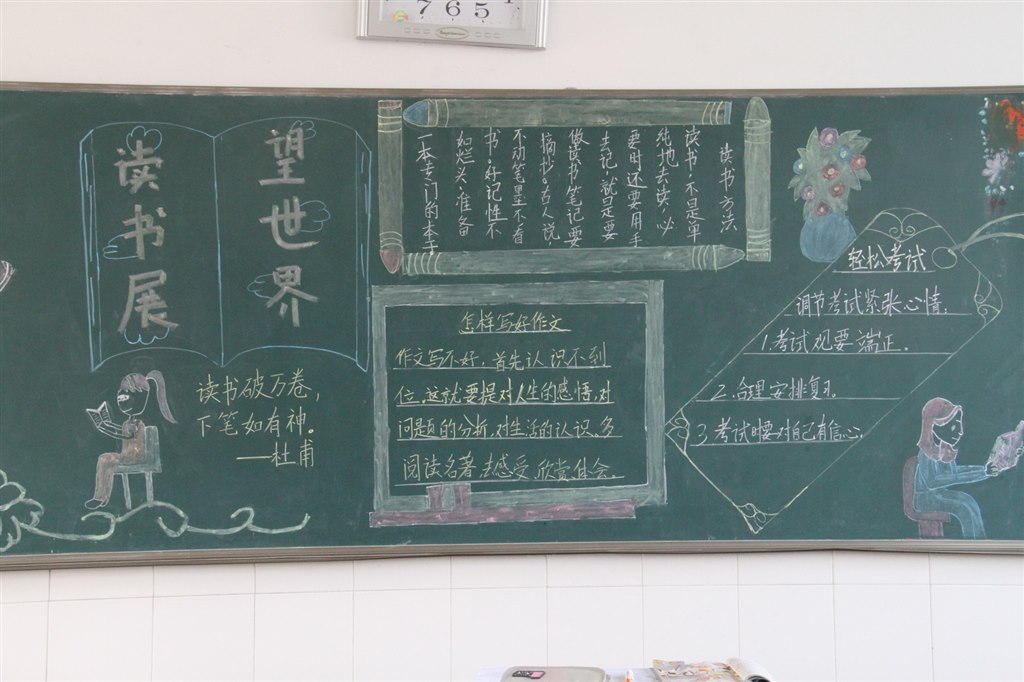 7 6 5
读书展
望世界
读书破万卷，
下笔如有神。
——杜甫
读书方法
读书，不是单
纯地去读，必
要时还要用手
去记，就是要
做读书笔记要
摘抄。古人说
不动笔墨不看
书。好记性不
如烂头，准备
一本专门的本子
怎样写好作文
作文写不好，首先认识不到
位。这就要提对人生的感悟，对
问题的分析，对生活的认识。多
阅读名著，去感受、欣赏、体会。
轻松考试
调节考试紧张心情。
1.考试观要端正。
2.合理安排复习.
3.考试时要对自己有信心。